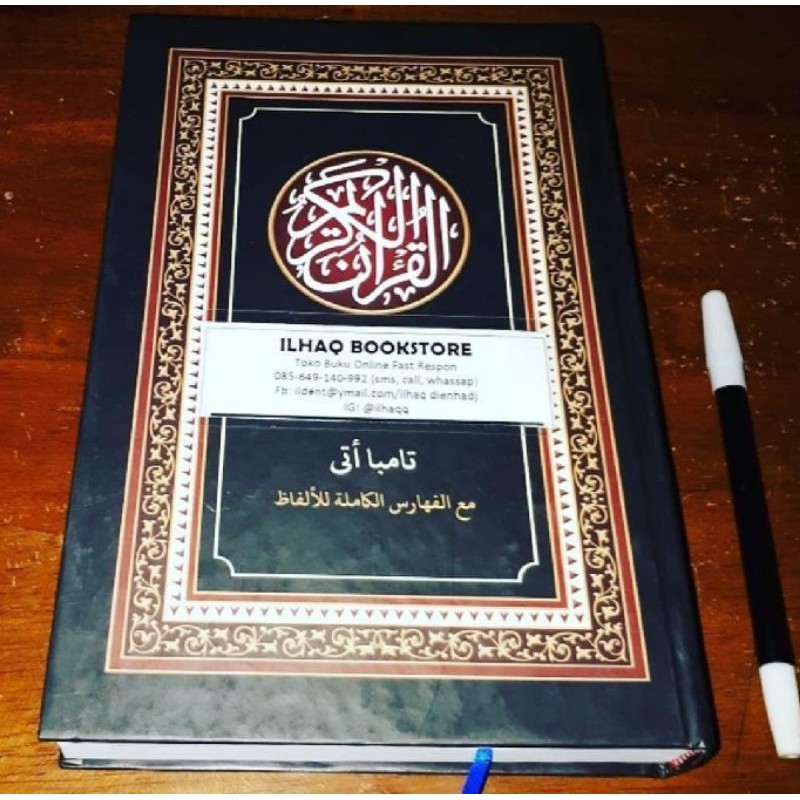 القرآن الكريم
ILHAQ BOOKSTORE
Toko Buku Online Fast Respon
085-649-140-992 (sms, call, whassap)
Fb: ildent@ymail.com/ilhaq dienhad)
IG: @ilhaqq
تامبا أتى
مع الفهارس الكاملة للألفاظ